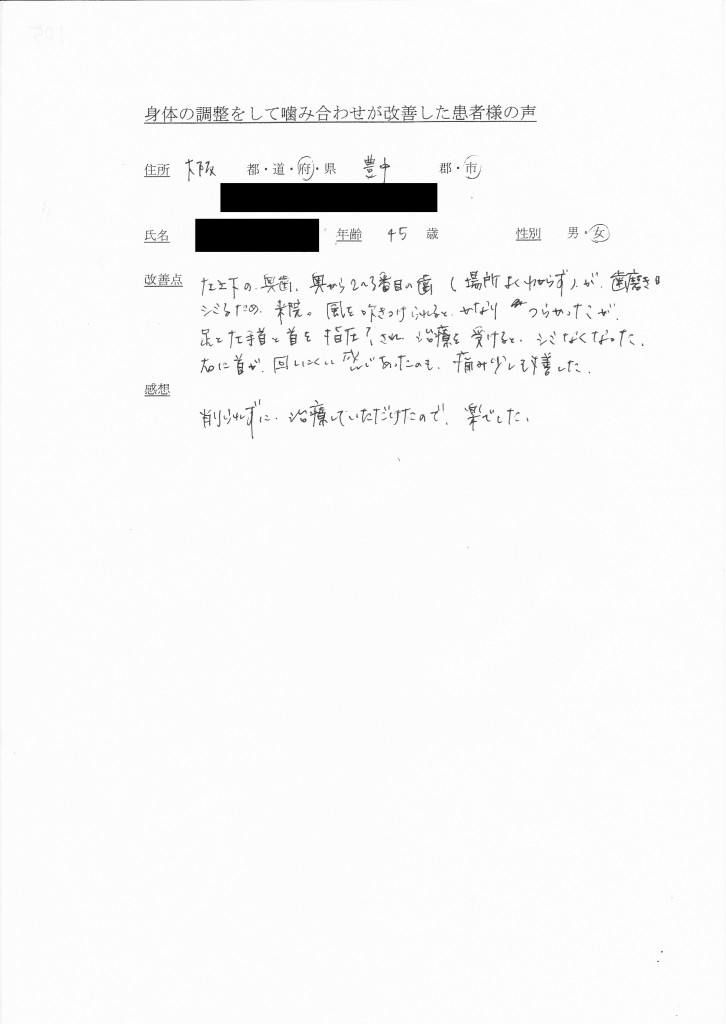 身体の調整をして噛み合わせが改善した患者様の声
住所 大阪 都・道・府・県 豊中 郡・市
氏名 年齢 45 歳 性別 男・女
改善点 左上下の奥歯、奥から2〜3番目の歯(場所よくわからず)が、歯磨き時
シミるため、来院。風を吹きつけられると、かなりつらかったが、
足と左手首と首を指圧?され、治療を受けると、シミなくなった。
右に首が、回しにくい感じであったのも、痛み少しも改善した。
感想
削られずに、治療していただけたので、楽でした。